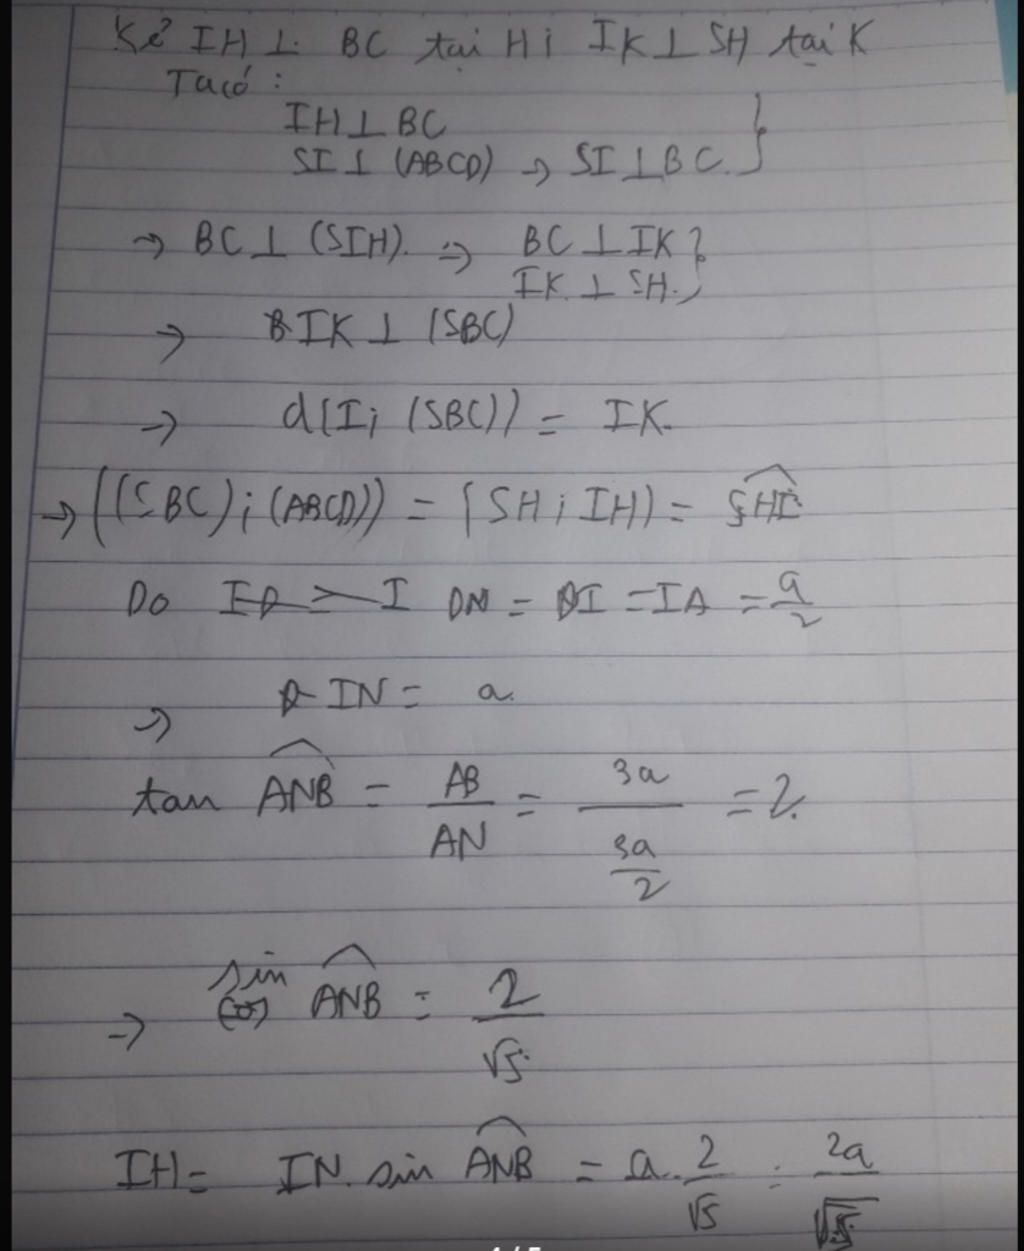 Kẻ IH ⊥ BC tại H; IK ⊥ SH tại K
Ta có:
IH ⊥ BC
SI ⊥ (ABCD) → SI ⊥ BC. }
→ BC ⊥ (SIH). => BC ⊥ IK }
IK ⊥ SH.
→ IK ⊥ (SBC)
→ d(I; (SBC)) = IK.
→ ((SBC); (ABCD)) = (SH; IH) = SHI
Do DN = DI = IA = a/2
→ IN = a.
tan ANB = AB/AN = 3a/(3a/2) = 2.
→ sin ANB = 2/√5
IH = IN. sin ANB = a. 2/√5 = 2a/√5